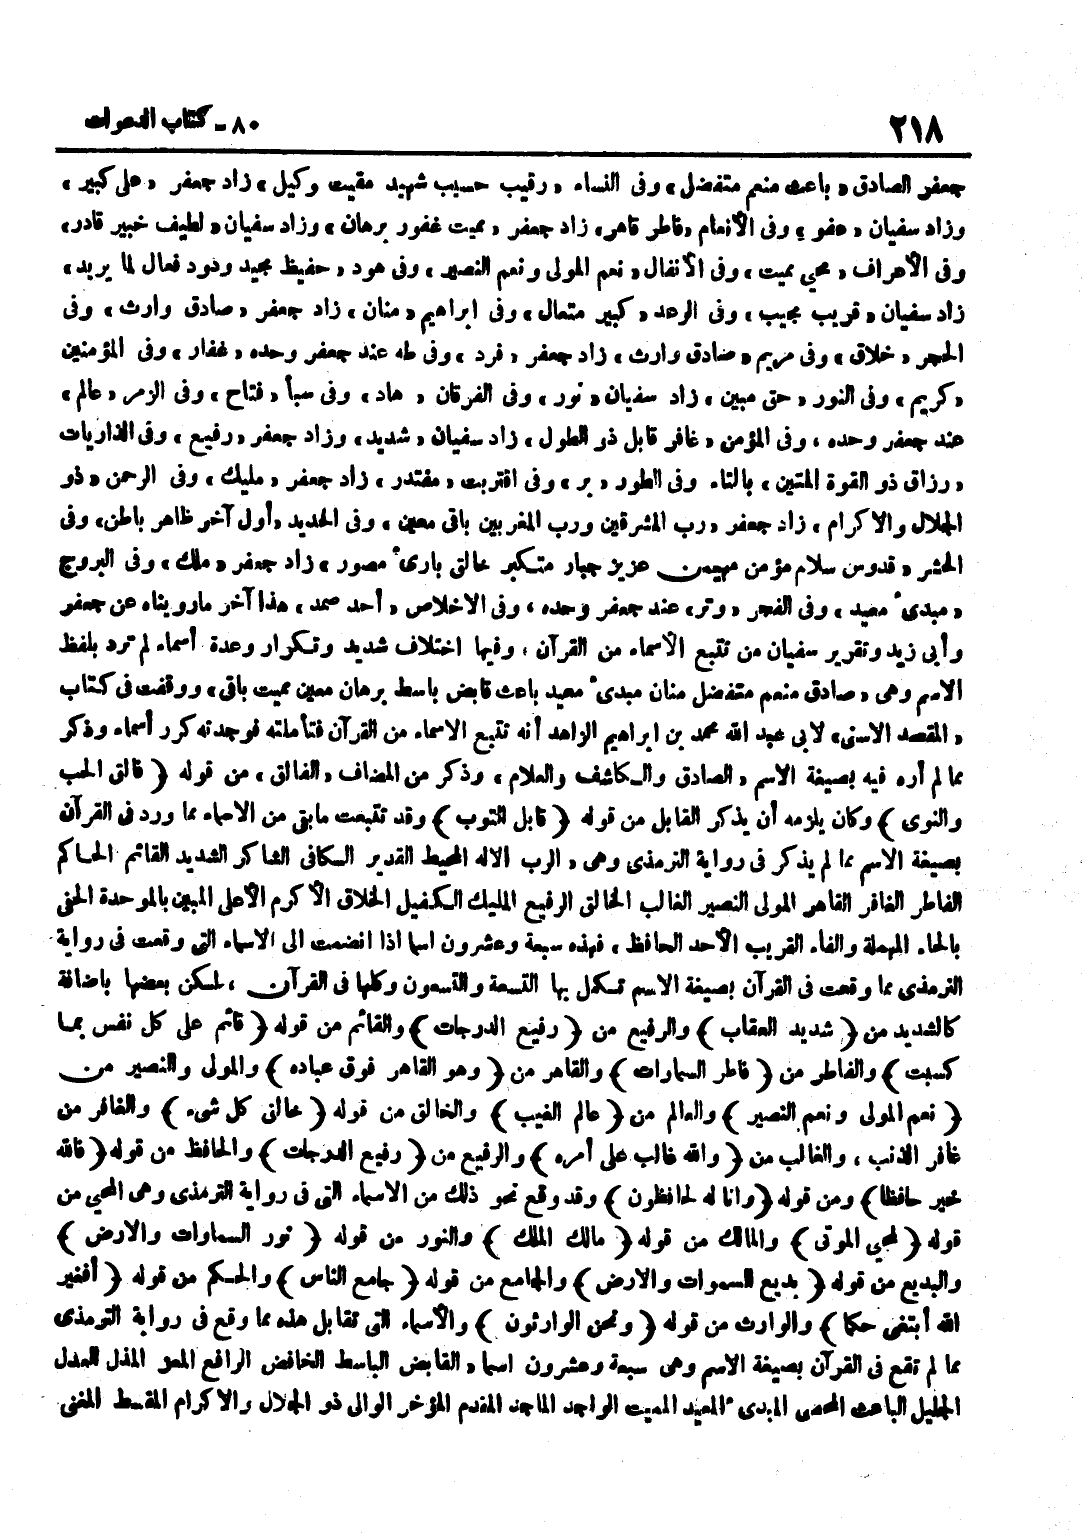 ٢١٨
٨٠ - كتاب الدعوات
جعفر الصادق « باعث منعم متفضل » وفى النساء « رقيب حسيب شهيد مقيت وكيل » زاد جعفر « على كبير »
وزاد سفيان « عفو » وفى الأنعام « فاطر قاهر » زاد جعفر « مميت غفور برهان » وزاد سفيان « لطيف خبير قادر »
وفى الأعراف « محيي مميت » وفى الأنفال « نعم المولى ونعم النصير » وفى هود « حفيظ مجيد ودود فعال لما يريد »
زاد سفيان « قريب مجيب » وفى الرعد « كبير متعال » وفى ابراهيم « منان » زاد جعفر « صادق وارث » وفى
الحجر « خلاق » وفى مريم « صادق وارث » زاد جعفر « فرد » وفى طه عند جعفر وحده « غفار » وفى المؤمنين
« كريم » وفى النور « حق مبين » زاد سفيان « نور » وفى الفرقان « هاد » وفى سبأ « فتاح » وفى الزمر « عالم »
عند جعفر وحده ، وفى المؤمن « غافر قابل ذو الطول » زاد سفيان « شديد » وزاد جعفر « رفيع » وفى الذاريات
« رزاق ذو القوة المتين » بالتاء وفى الطور « بر » وفى اقتربت « مقتدر » زاد جعفر « مليك » وفى الرحمن « ذو
الجلال والاكرام » زاد جعفر « رب المشرقين ورب المغربين باقى معين » وفى الحديد « أول آخر ظاهر باطن » وفى
الحشر « قدوس سلام مؤمن مهيمن عزيز جبار متكبر خالق بارئ مصور » زاد جعفر « ملك » وفى البروج
« مبدئ معيد » وفى الفجر « وتر » عند جعفر وحده ، وفى الاخلاص « أحد صمد » هذا آخر مارويناه عن جعفر
وأبى زيد وتقرير سفيان من تتبع الأسماء من القرآن ، وفيها اختلاف شديد وتكرار وعدة أسماء لم ترد بلفظ
الاسم وهى « صادق منعم متفضل منان مبدئ معيد باعث قابض باسط برهان معين مميت باقى » ووقفت فى كتاب
« المقصد الاسنى » لابى عبد الله محمد بن ابراهيم الزاهد أنه تتبع الاسماء من القرآن فتأملته فوجدته كرر أسماء وذكر
مما لم أره فيه بصيغة الاسم « الصادق والكاشف والعلام » وذكر من المضاف « الفالق » من قوله ﴿ فالق الحب
والنوى ﴾ وكان يلزمه أن يذكر القابل من قوله ﴿ قابل التوب ﴾ وقد تتبعت مابقى من الاسماء مما ورد فى القرآن
بصيغة الاسم مما لم يذكر فى رواية الترمذى وهى « الرب الاله المحيط القدير الكافى الشاكر الشديد القائم الحاكم
الفاطر الغافر القاهر المولى النصير الغالب الخالق الرفيع المليك الكفيل الخلاق الأكرم الأعلى المبين بالموحدة الحفى
بالحاء المهملة والفاء القريب الأحد الحافظ » فهذه سبعة وعشرون اسما اذا انضمت الى الاسماء التى وقعت فى رواية
الترمذى مما وقعت فى القرآن بصيغة الاسم تكمل بها التسعة والتسعون وكلها فى القرآن ، لكن بعضها باضافة
كالشديد من ﴿ شديد العقاب ﴾ والرفيع من ﴿ رفيع الدرجات ﴾ والقائم من قوله ﴿ قائم على كل نفس بما
كسبت ﴾ والفاطر من ﴿ فاطر السماوات ﴾ والقاهر من ﴿ وهو القاهر فوق عباده ﴾ والمولى والنصير من
﴿ نعم المولى ونعم النصير ﴾ والعالم من ﴿ عالم الغيب ﴾ والخالق من قوله ﴿ خالق كل شىء ﴾ والغافر من
غافر الذنب ، والغالب من ﴿ والله غالب على أمره ﴾ والرفيع من ﴿ رفيع الدرجات ﴾ والحافظ من قوله ﴿ فالله
خير حافظا ﴾ ومن قوله ﴿ وانا له لحافظون ﴾ وقد وقع نحو ذلك من الاسماء التى فى رواية الترمذى وهى المحيي من
قوله ﴿ لمحيي الموتى ﴾ والمالك من قوله ﴿ مالك الملك ﴾ والنور من قوله ﴿ نور السماوات والارض ﴾
والبديع من قوله ﴿ بديع السموات والارض ﴾ والجامع من قوله ﴿ جامع الناس ﴾ والحكم من قوله ﴿ أفغير
الله أبتغى حكما ﴾ والوارث من قوله ﴿ ونحن الوارثون ﴾ والأسماء التى تقابل هذه مما وقع فى رواية الترمذى
مما لم تقع فى القرآن بصيغة الاسم وهى سبعة وعشرون اسما « القابض الباسط الخافض الرافع المعز المذل العدل
الجليل الباعث المحصى المبدئ المعيد المميت الواجد الماجد المقدم المؤخر الوالى ذو الجلال والاكرام المقسط المغنى